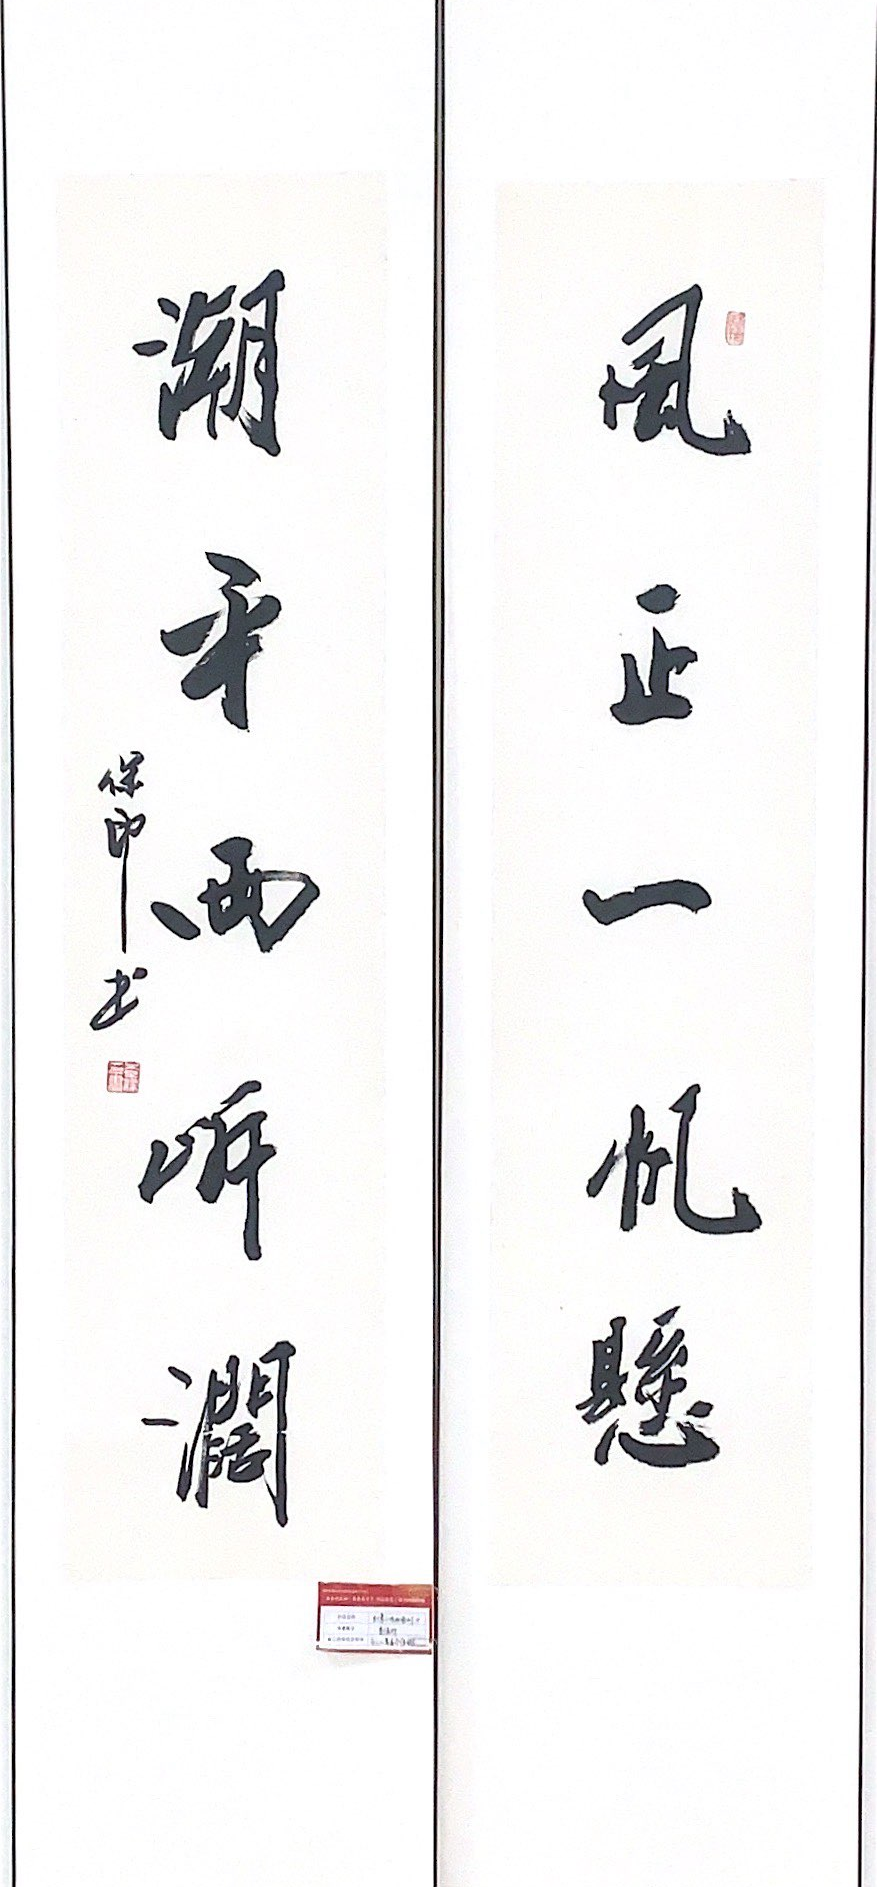 風正一帆懸
潮平兩岸闊
保印书